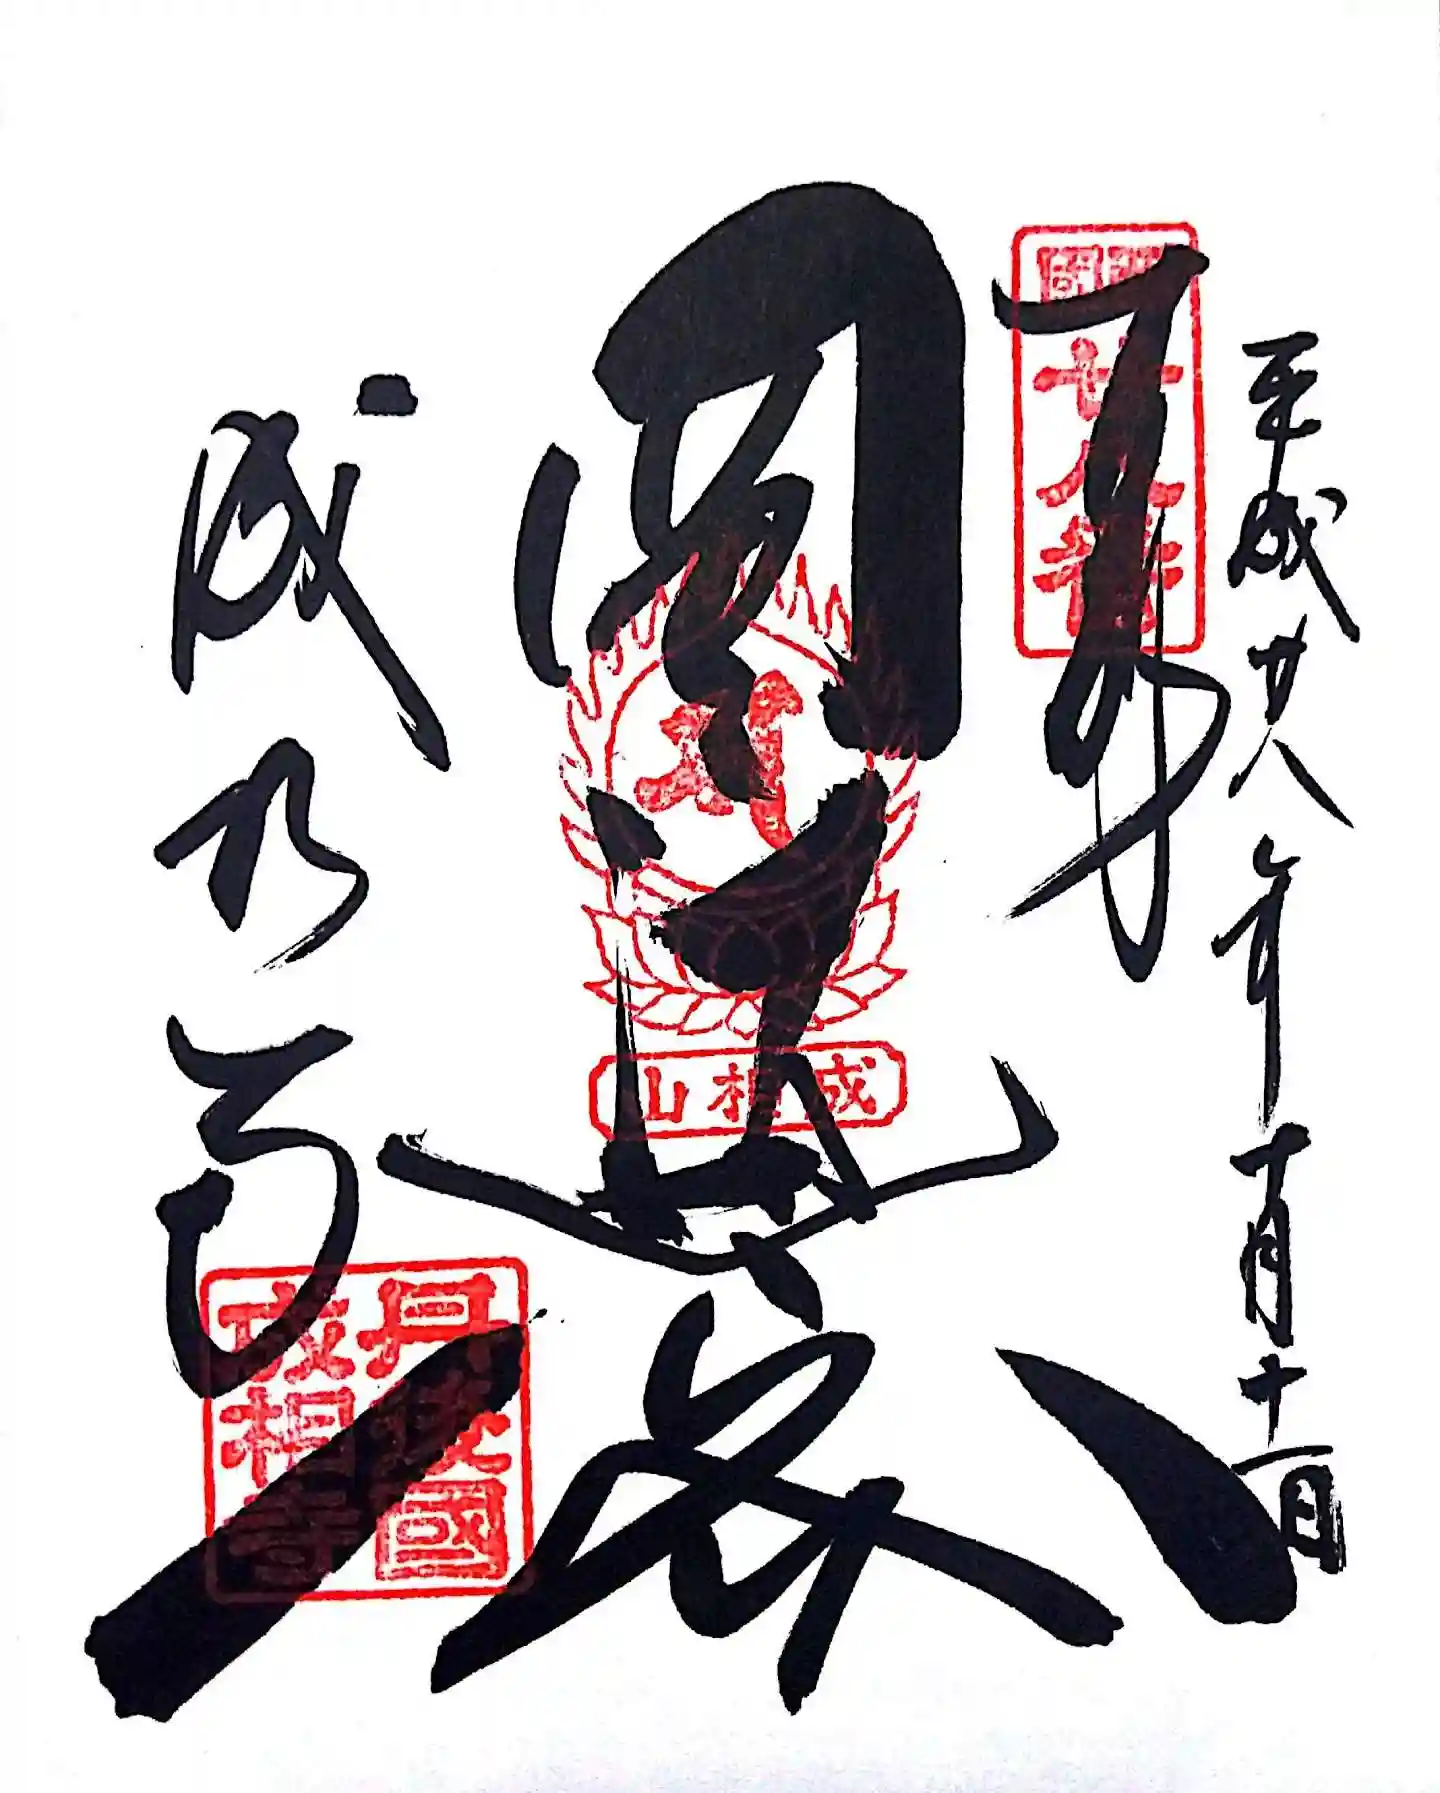 平成廿八年十月十一日
奉拝
西國廿八番
成相山
成相寺
丹後國
成相寺